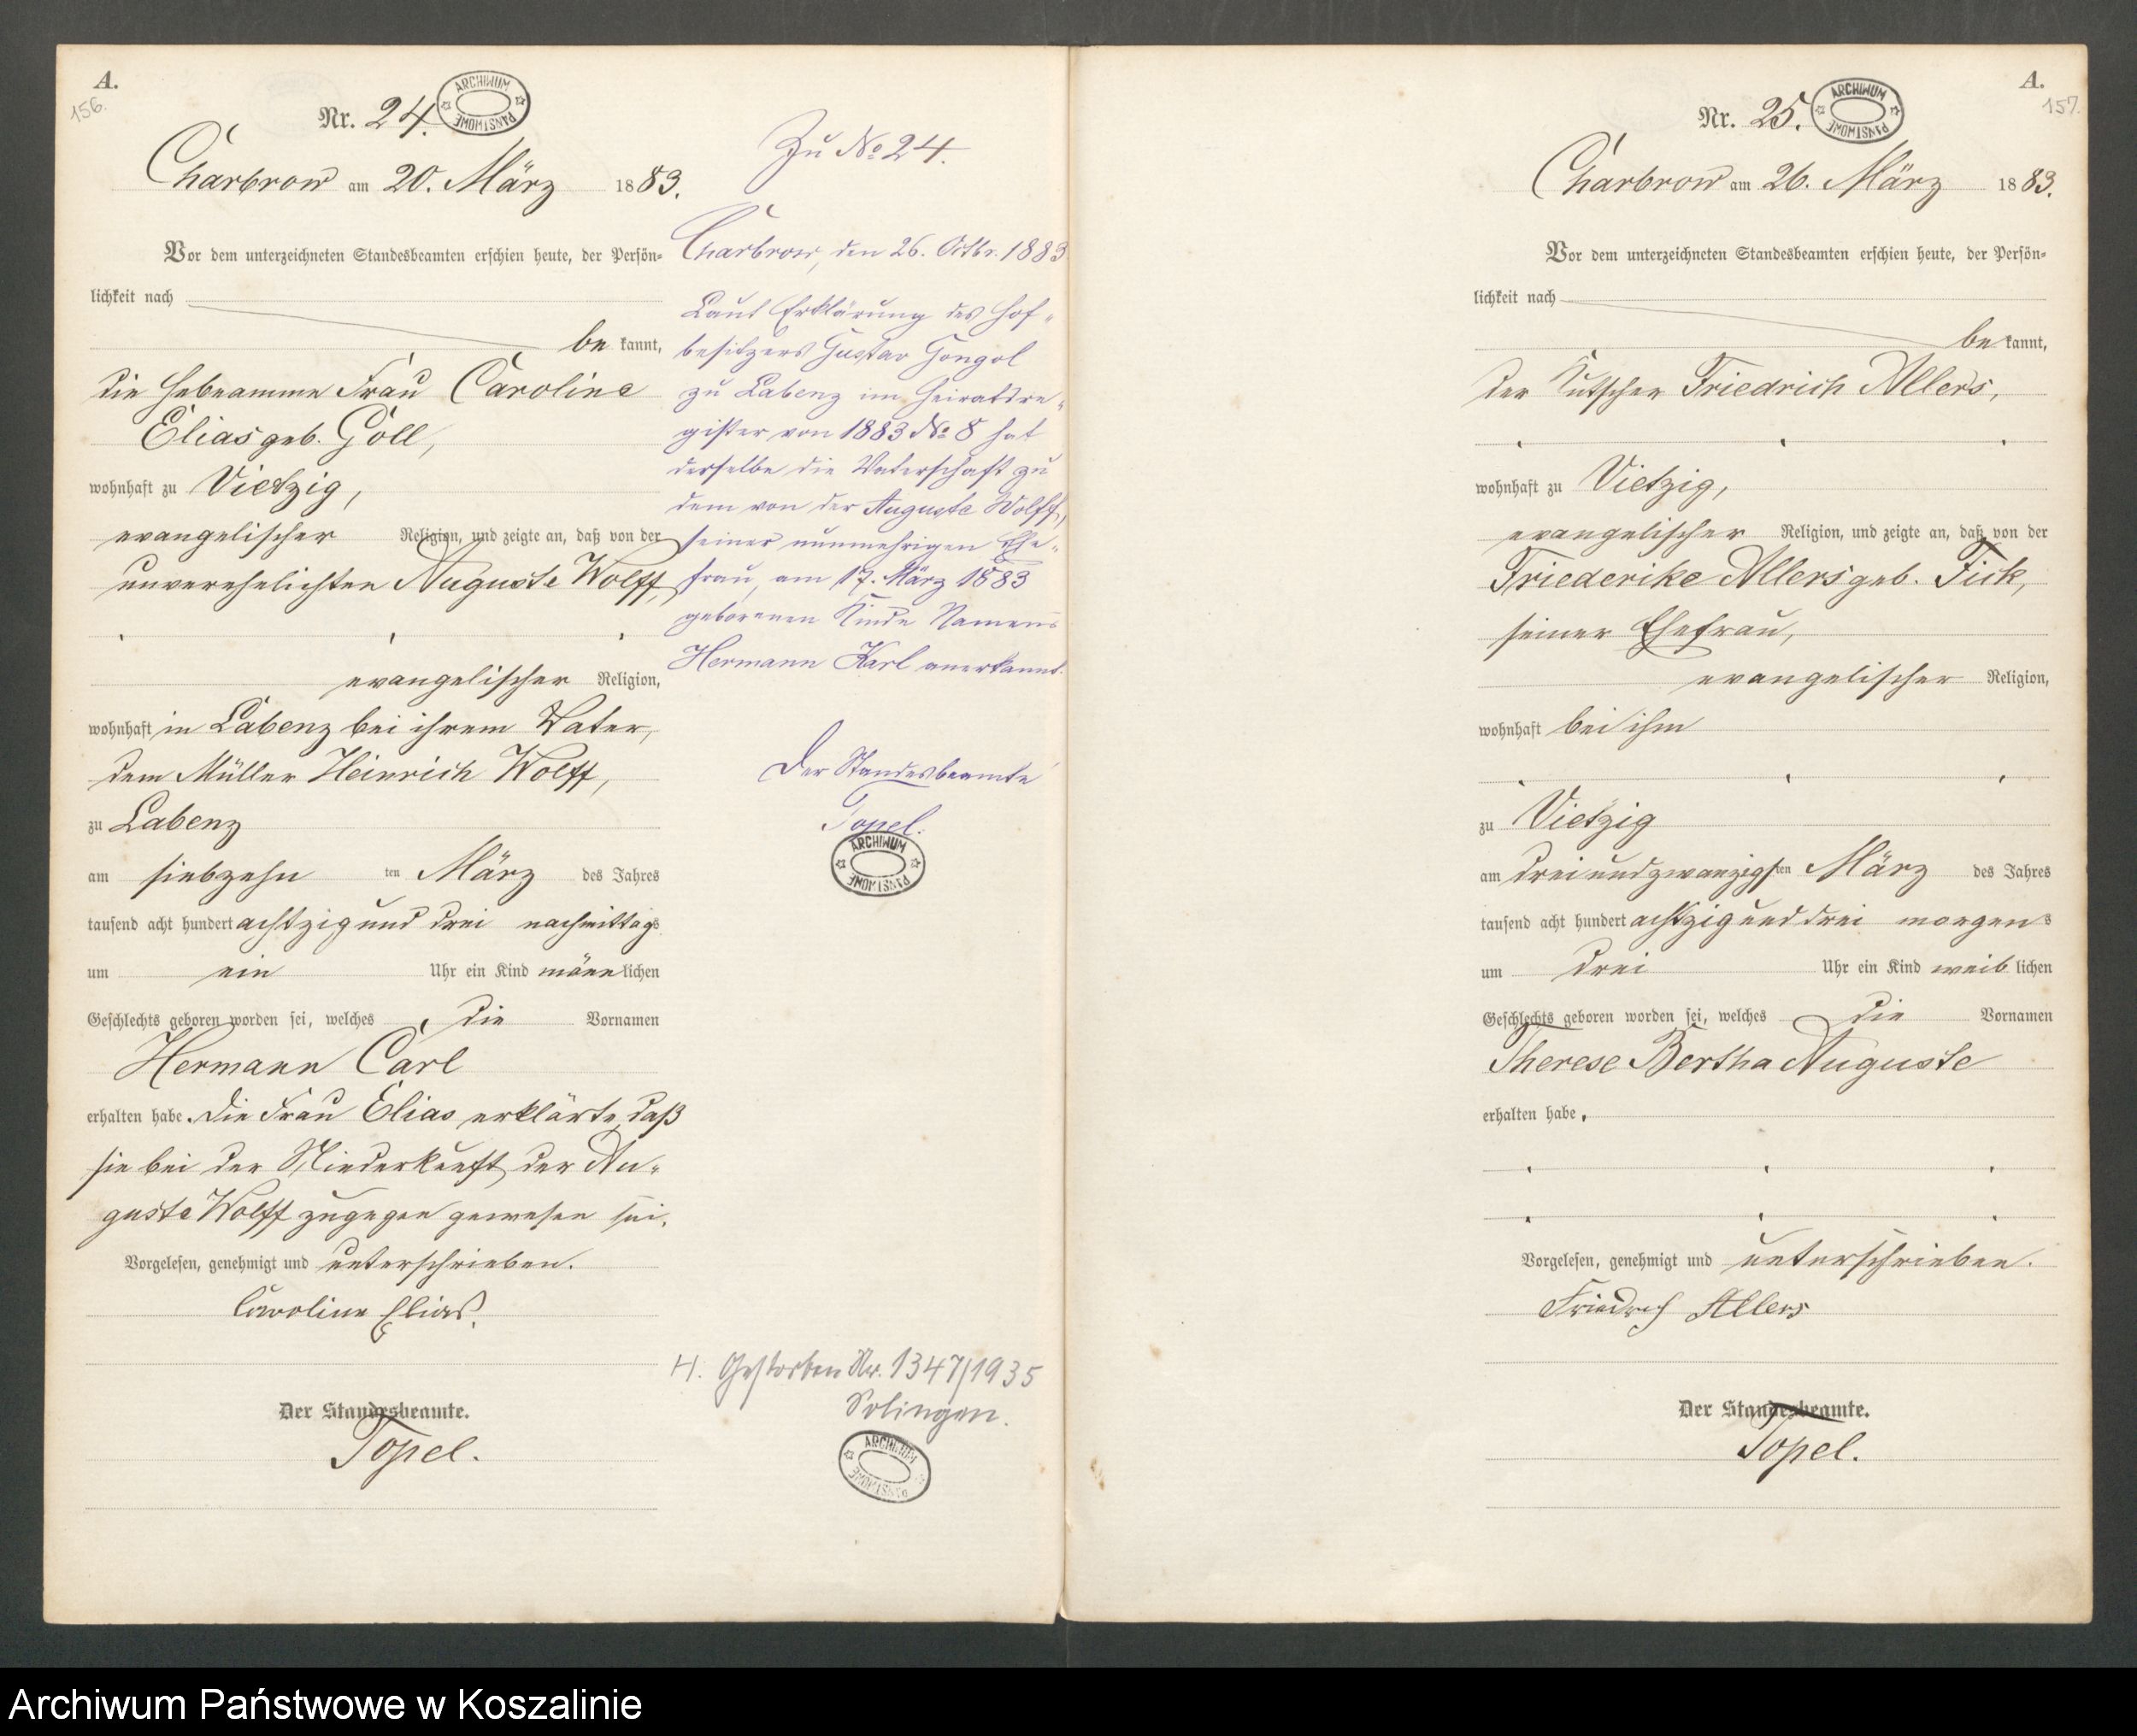 A.
156.
Nr. 24.
ARCHIWUM PAŃSTWOWE
Charbrow am 20. März 1883.
Vor dem unterzeichneten Standesbeamten erschien heute, der Persön-
lichkeit nach
be kannt,
die Hebeamme Frau Caroline
Elias geb. Göll,
wohnhaft zu Vietzig,
evangelischer Religion, und zeigte an, daß von der
unverehelichten Auguste Wolff,
evangelischer Religion,
wohnhaft in Labenz bei ihrem Vater,
dem Müller Heinrich Wolff,
zu Labenz
am siebzehn ten März des Jahres
tausend acht hundert achtzig und drei nachmittags
um ein Uhr ein Kind männlichen
Geschlechts geboren worden sei, welches die Vornamen
Hermann Carl
erhalten habe. Die Frau Elias erklärte, daß
sie bei der Niederkunft der Au-
guste Wolff zugegen gewesen sei.
Vorgelesen, genehmigt und unterschrieben.
Caroline Elias.
Der Standesbeamte.
Topel.
Zu No 24.
Charbrow, den 26. Octbr. 1883.
Laut Erklärung des Hof-
besitzers Gustav Gongol
zu Labenz im Heiratsre-
gister von 1883 No 8 hat
derselbe die Vaterschaft zu
dem von der Auguste Wolff,
seiner nunmehrigen Ehe-
frau, am 17. März 1883
geborenen Kinde Namens
Hermann Karl anerkannt.
Der Standesbeamte
Topel.
ARCHIWUM PAŃSTWOWE
H. Gestorben Nr. 1347/1935
Solingen.
ARCHIWUM PAŃSTWOWE
A.
157.
Nr. 25.
ARCHIWUM PAŃSTWOWE
Charbrow am 26. März 1883.
Vor dem unterzeichneten Standesbeamten erschien heute, der Persön-
lichkeit nach
be kannt,
der Kutscher Friedrich Allers,
wohnhaft zu Vietzig,
evangelischer Religion, und zeigte an, daß von der
Friederike Allers geb. Fick,
seiner Ehefrau,
evangelischer Religion,
wohnhaft bei ihm
zu Vietzig
am dreiundzwanzigsten März des Jahres
tausend acht hundert achtzig und drei morgens
um drei Uhr ein Kind weiblichen
Geschlechts geboren worden sei, welches die Vornamen
Therese Bertha Auguste
erhalten habe.
Vorgelesen, genehmigt und unterschrieben.
Friedrich Allers
Der Standesbeamte.
Topel.
Archiwum Państwowe w Koszalinie